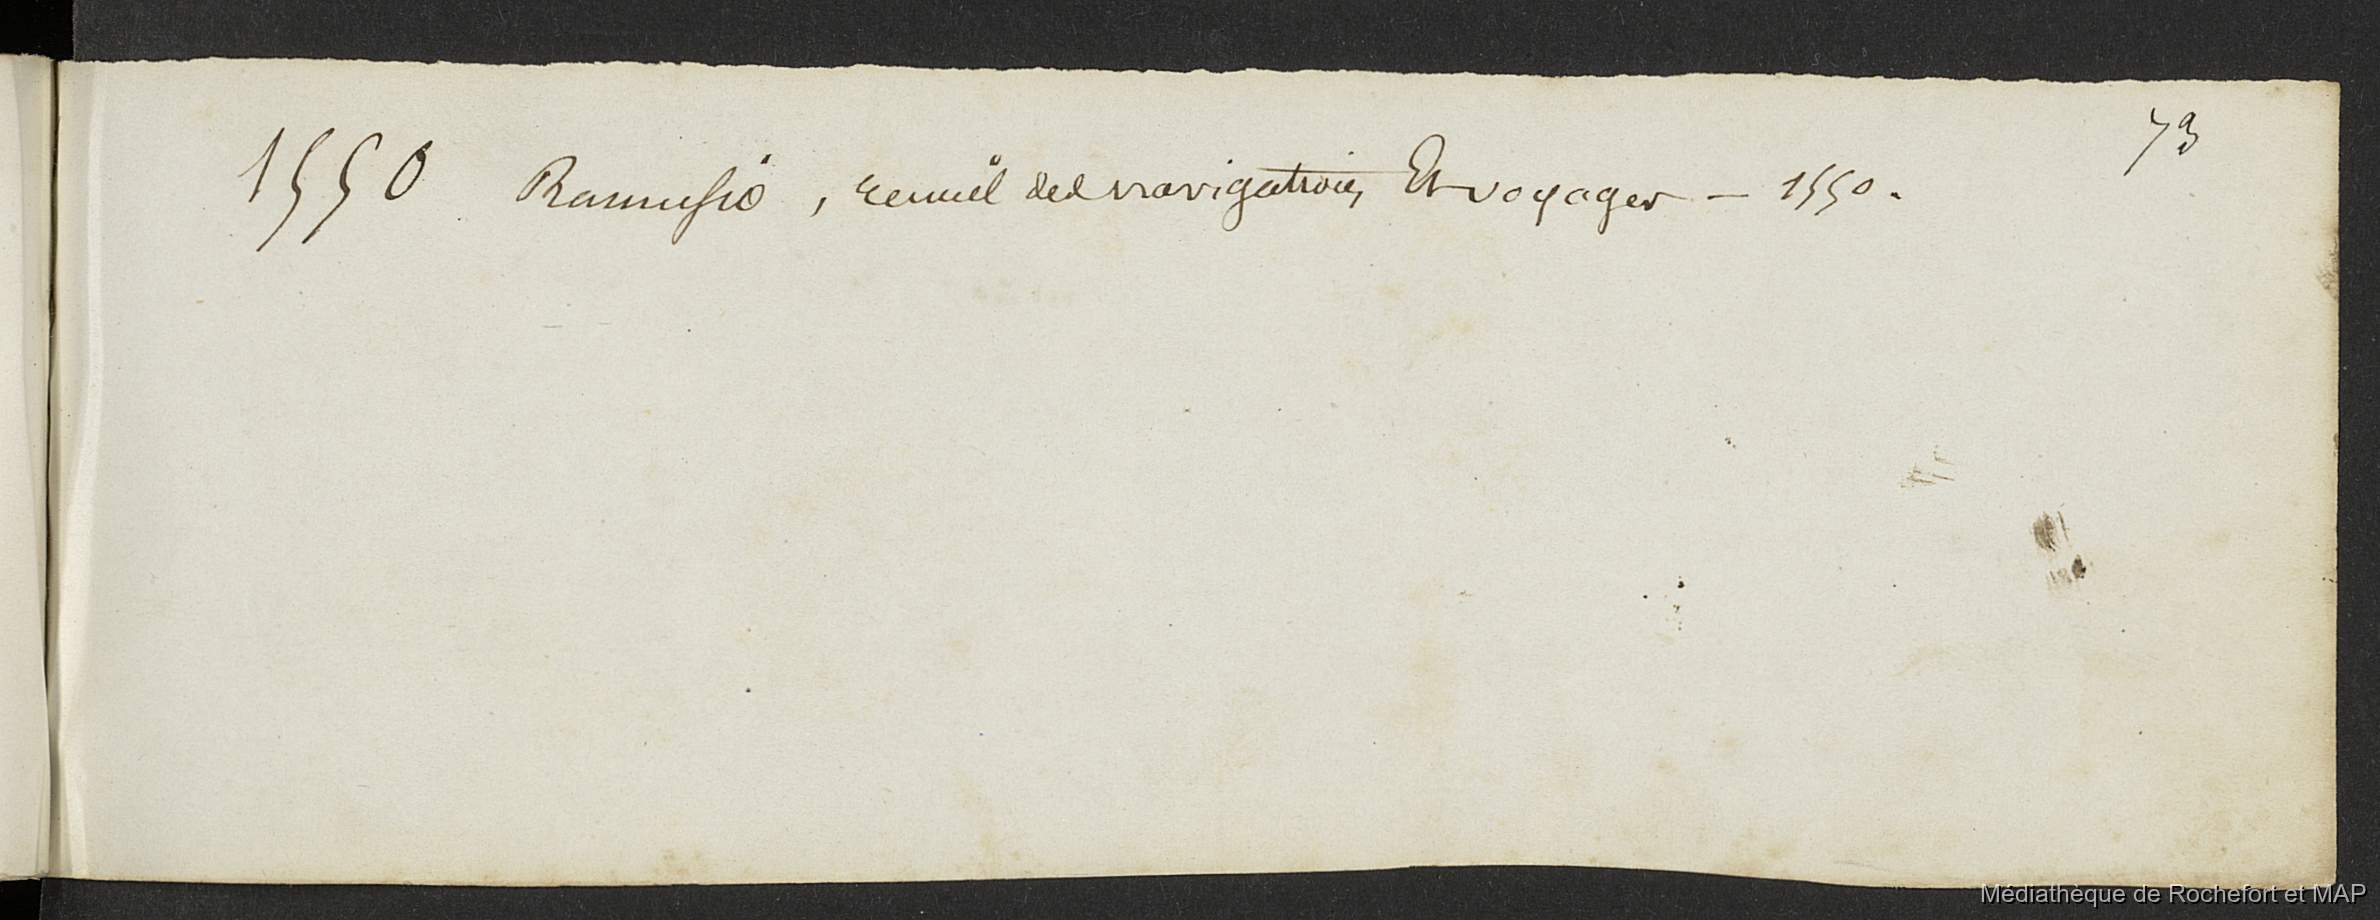 73
1550 Ramusio, recueil des navigations Et voyages — 1550.
Médiathèque de Rochefort et MAP